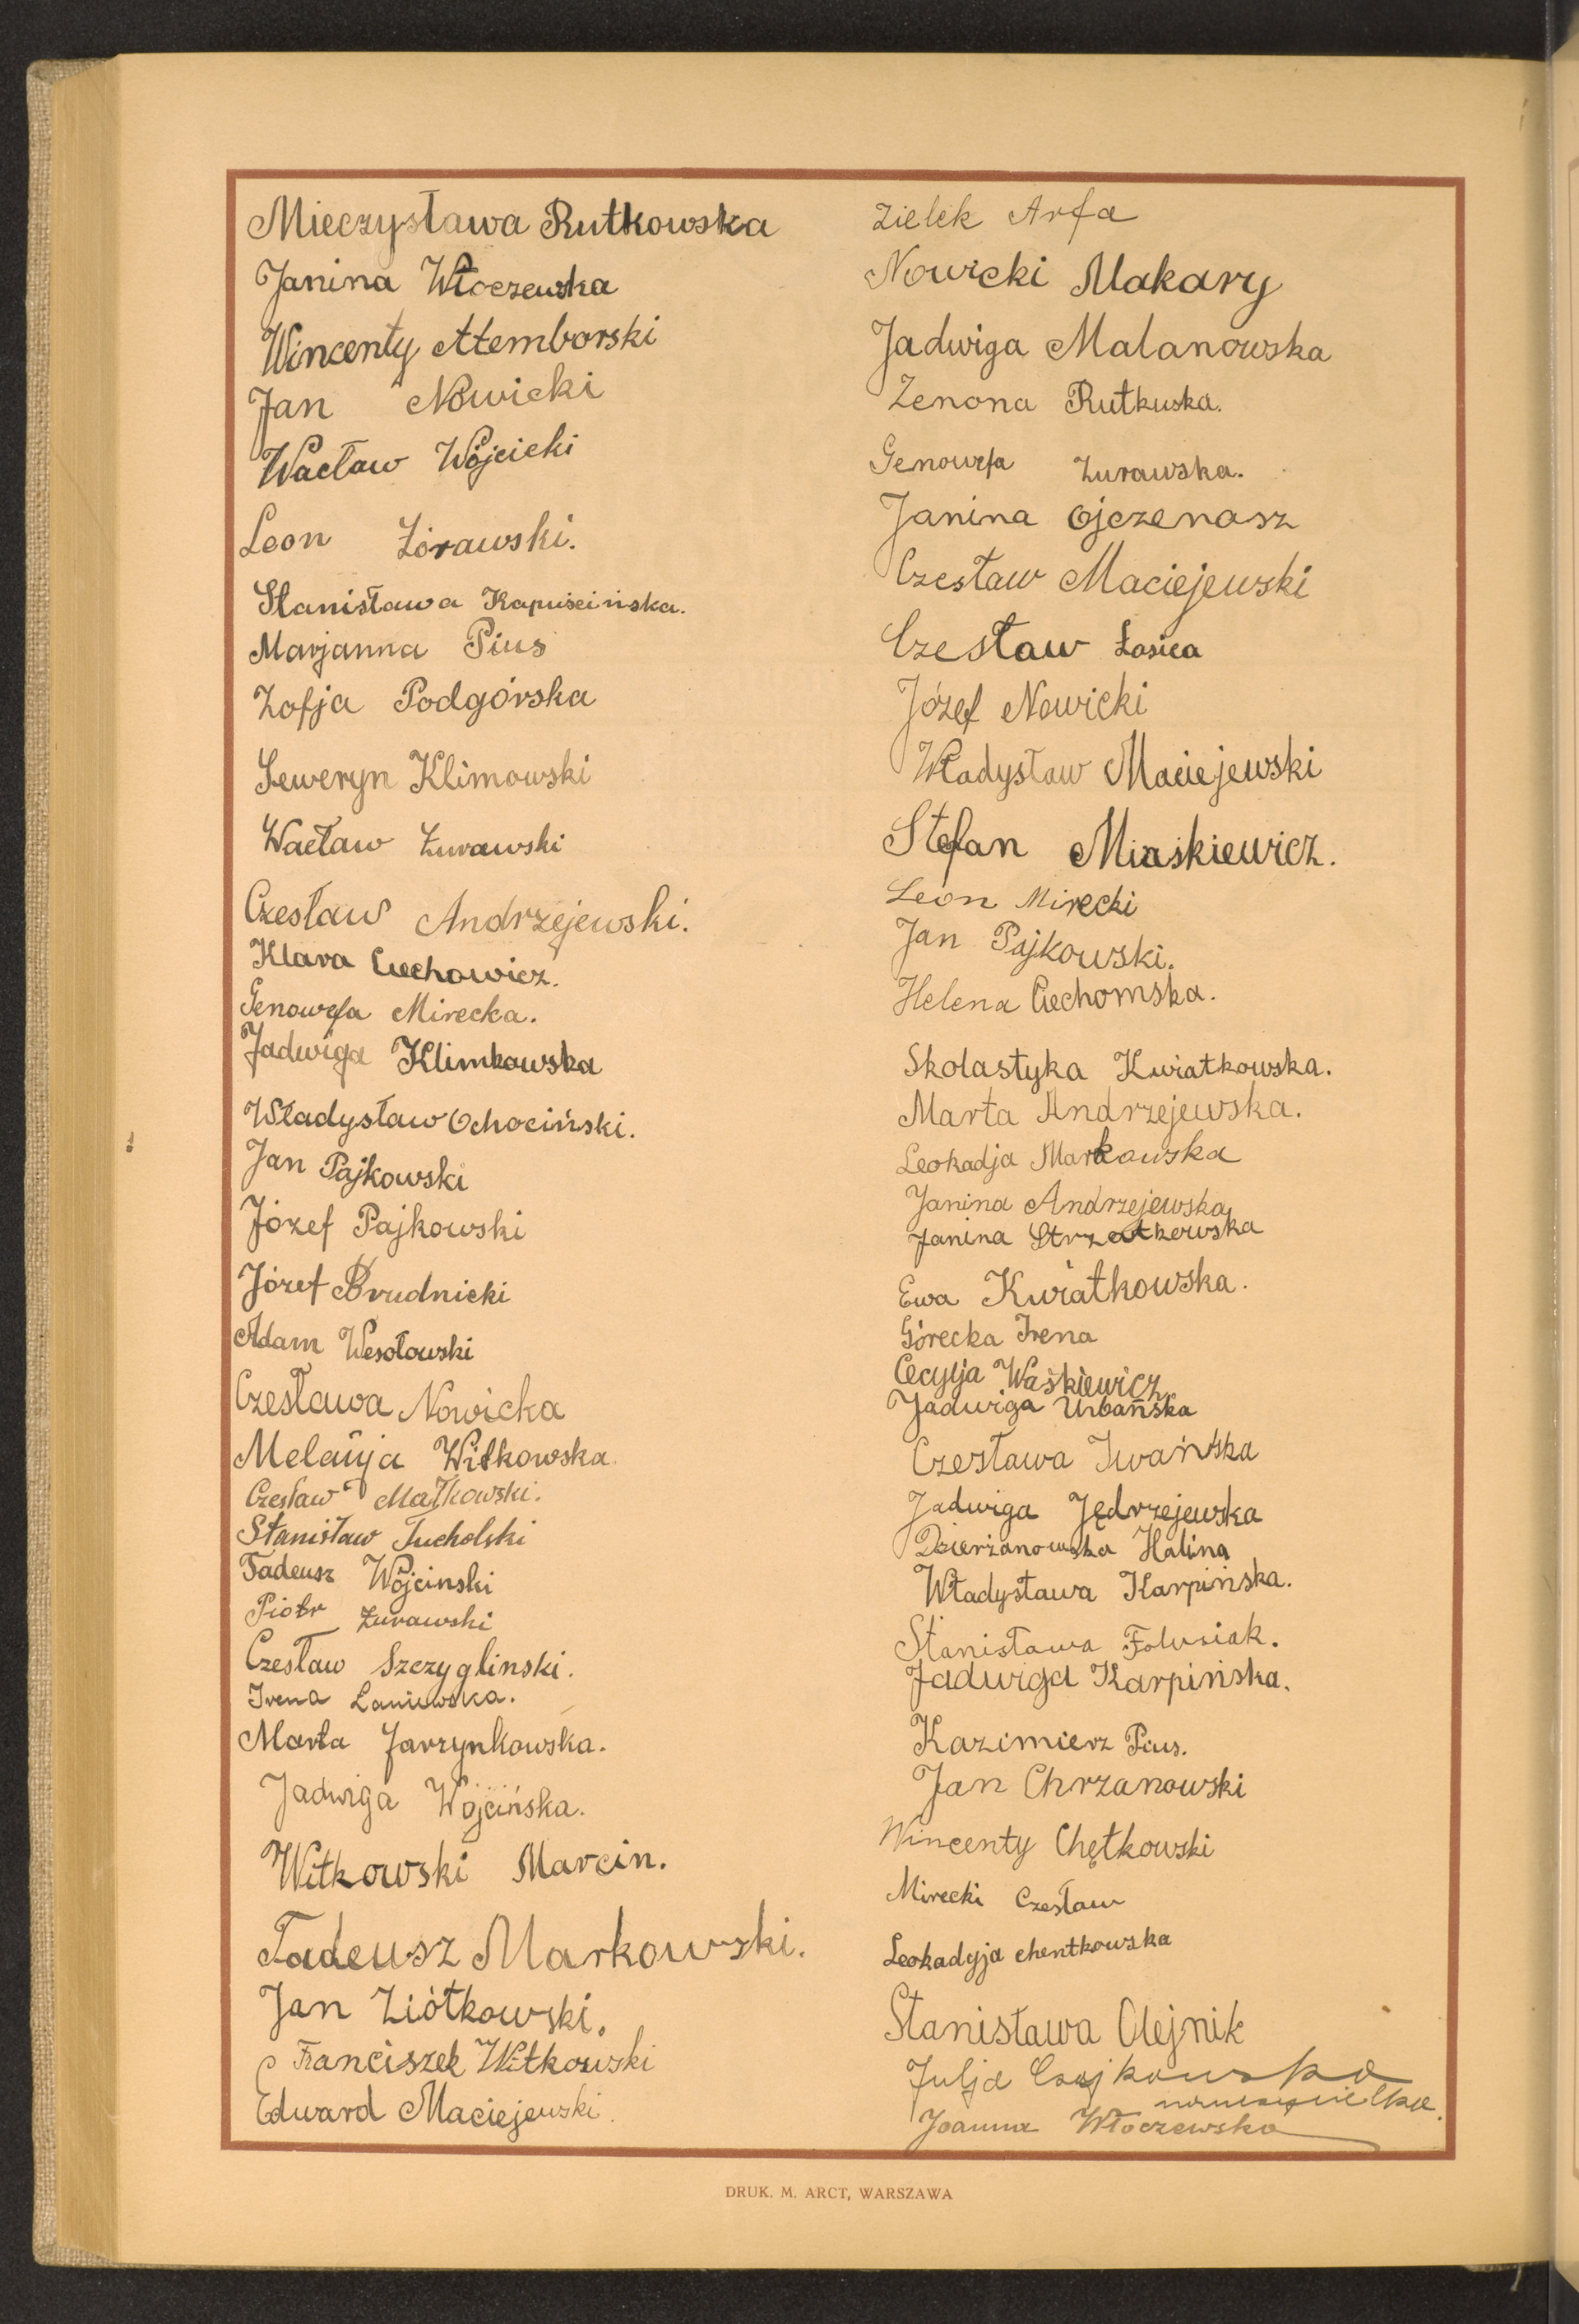 Mieczysława Rutkowska
Janina Włoczewska
Wincenty Atemborski
Jan Nowicki
Wacław Wójcicki
Leon Żórawski.
Stanisława Kapuścińska.
Marjanna Pius
Zofja Podgórska
Seweryn Klimowski
Wacław Żurawski
Czesław Andrzejewski.
Klara Ciechowicz.
Genowefa Mirecka.
Jadwiga Klimkowska
Władysław Ochociński.
Jan Pajkowski
Józef Pajkowski
Józef Brudnicki
Adam Wesołowski
Czesława Nowicka
Melanja Witkowska
Czesław Małkowski.
Stanisław Tucholski
Tadeusz Wójcinski
Piotr Żurawski
Czesław Szczyglinski.
Irena Łaniewska.
Marta Jarzynkowska.
Jadwiga Wójcińska.
Witkowski Marcin.
Tadeusz Markowski.
Jan Ziółkowski.
Franciszek Witkowski
Edward Maciejewski.
Zielek Arfa
Nowicki Makary
Jadwiga Malanowska
Zenona Rutkuska.
Genowefa Żurawska.
Janina Ojczenasz
Czesław Maciejewski
Czesław Łasica
Józef Nowicki
Władysław Maciejewski
Stefan Miaskiewicz.
Leon Mirecki
Jan Pajkowski.
Helena Ciechomska.
Skolastyka Kwiatkowska.
Marta Andrzejewska.
Leokadja Markowska
Janina Andrzejewska
Janina Strzatkowska
Ewa Kwiatkowska.
Górecka Irena
Cecylja Waśkiewicz
Jadwiga Urbańska
Czesława Iwańska
Jadwiga Jędrzejewska
Dzierżanowska Halina
Władysława Karpińska.
Stanisława Folusiak.
Jadwiga Karpińska.
Kazimierz Pius.
Jan Chrzanowski
Wincenty Chętkowski
Mirecki Czesław
Leokadyja chentkowska
Stanisława Olejnik
Julja Czajkowska
nauczycielka.
Joanna Włoczewska
DRUK. M. ARCT, WARSZAWA